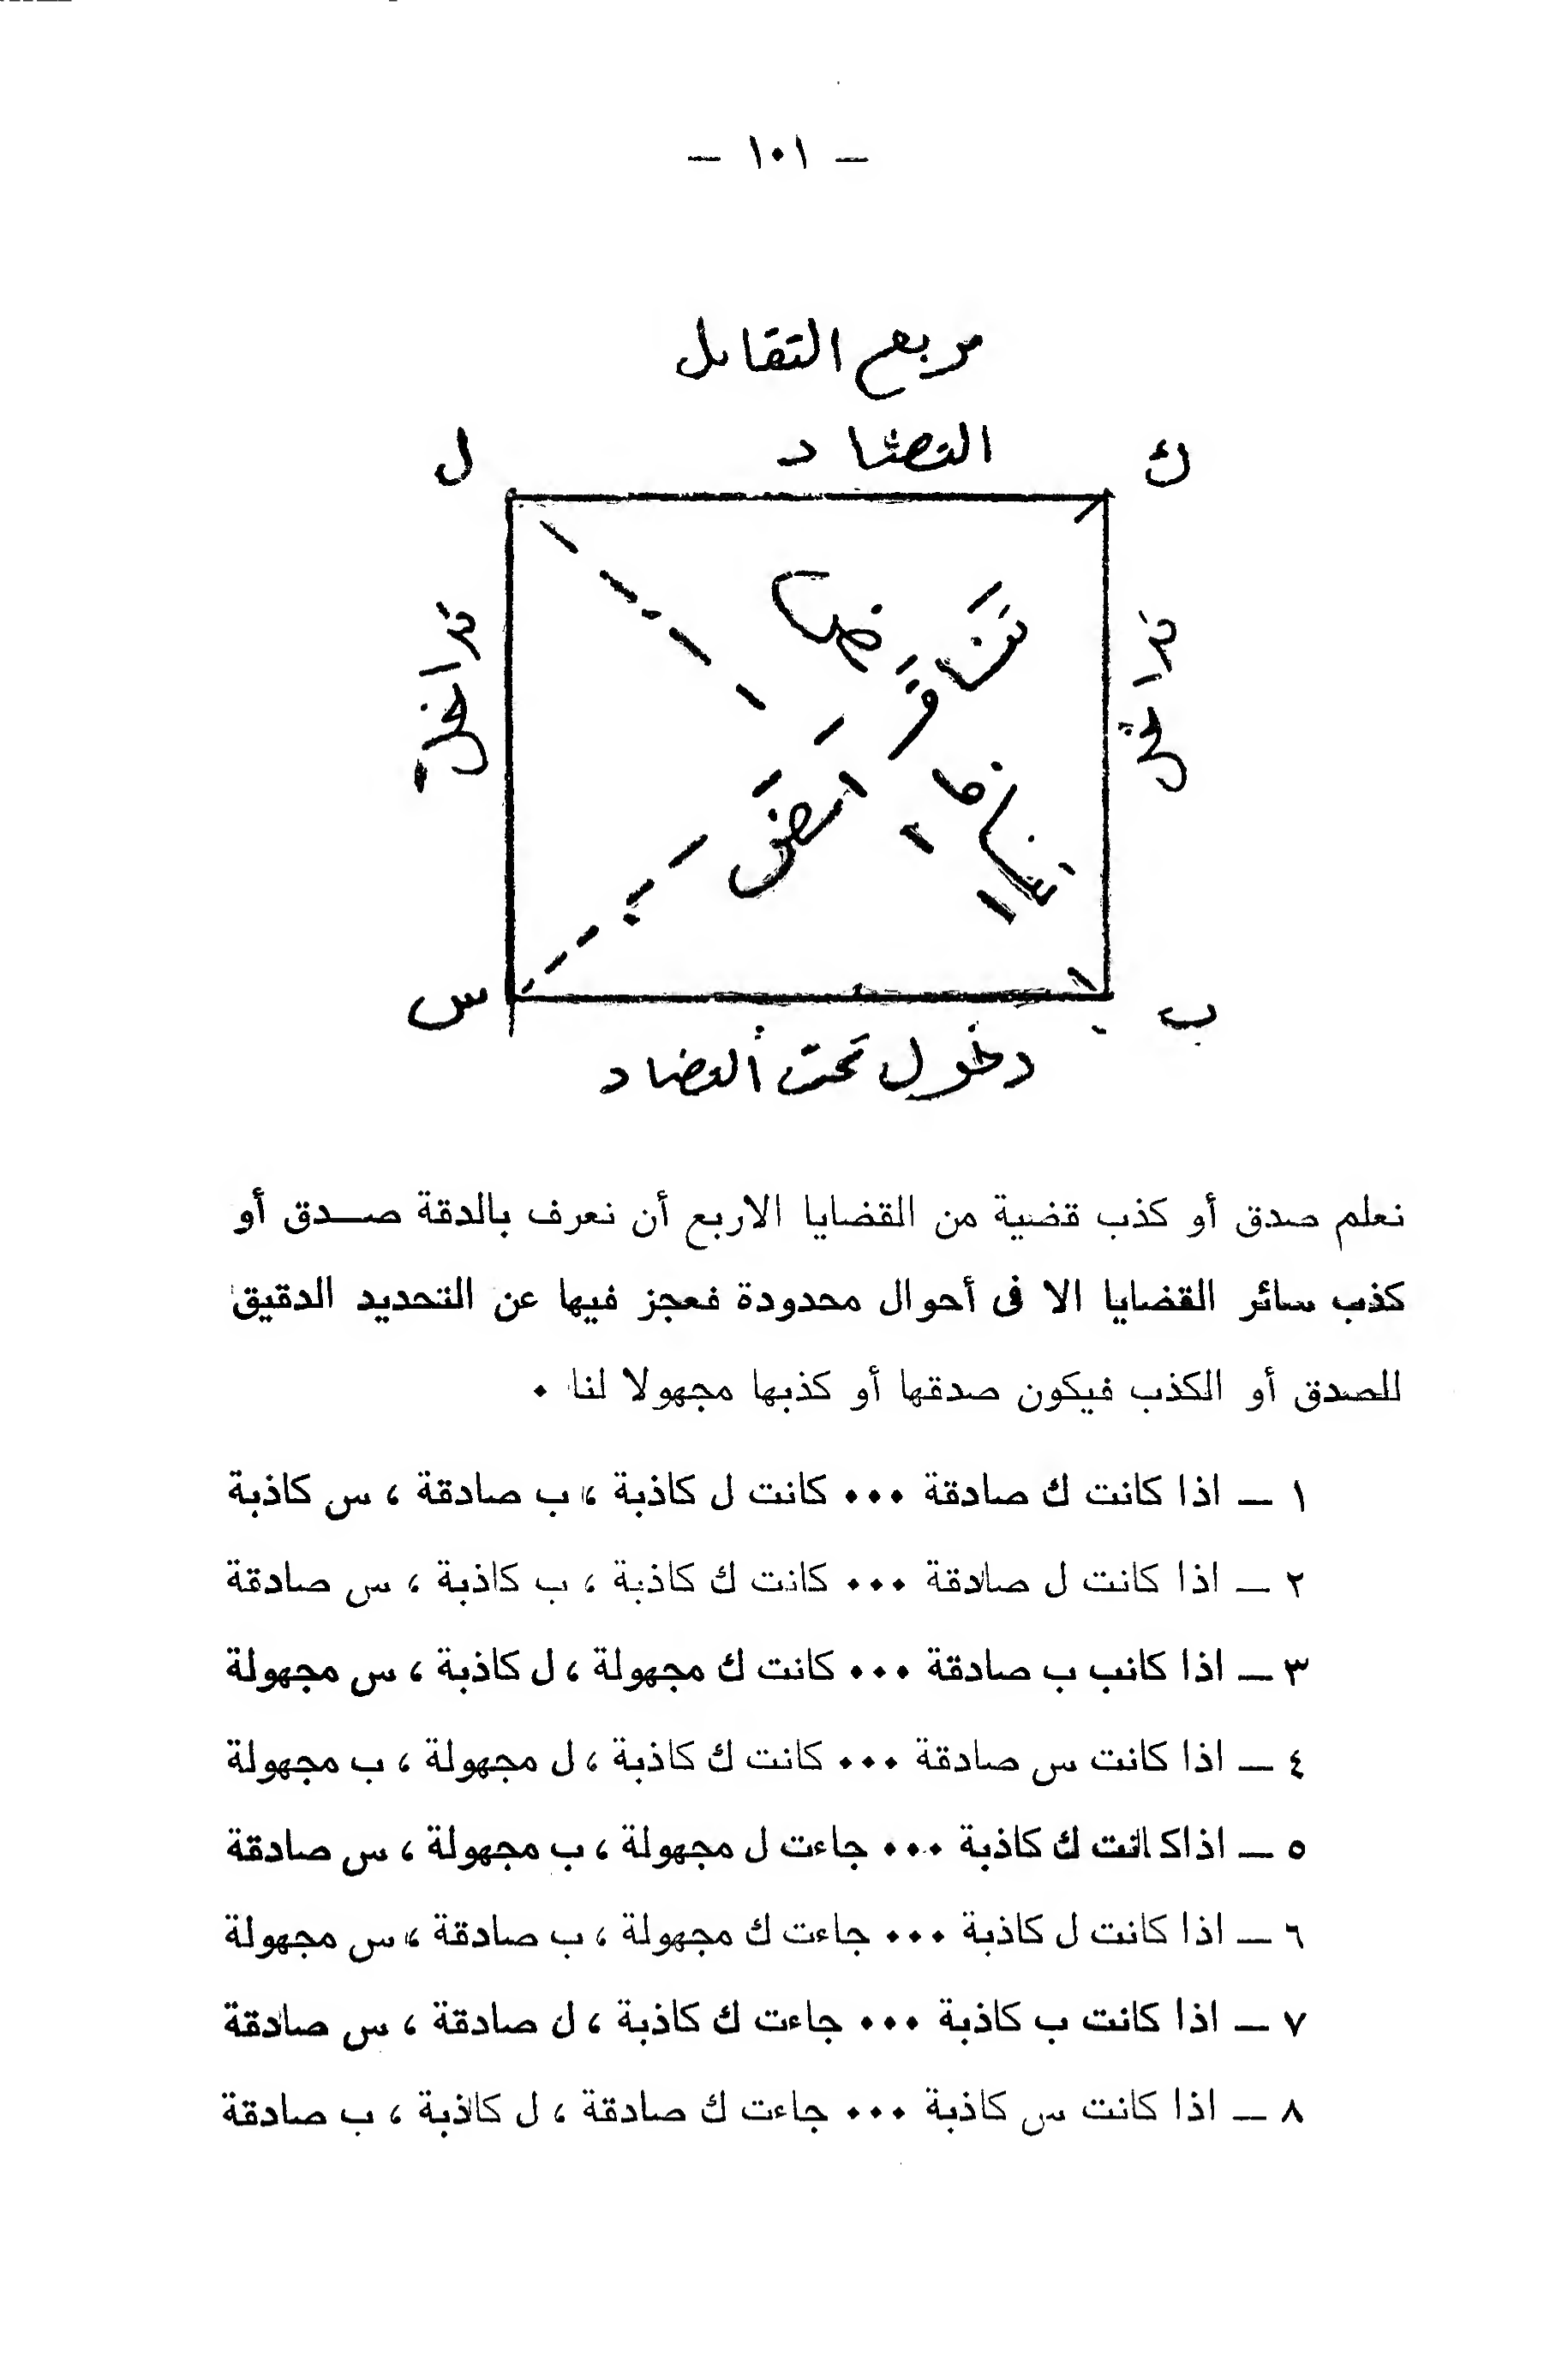 — ١٠١ —
مربع التقابل
التضاد
ك
ل
تداخل
تداخل
تناقض
تناقض
ب
س
دخول تحت التضاد
نعلم صدق أو كذب قضية من القضايا الاربع أن نعرف بالدقة صـدق أو
كذب سائر القضايا الا فى أحوال محدودة فعجز فيها عن التحديد الدقيق
للصدق أو الكذب فيكون صدقها أو كذبها مجهولا لنا ٠
١ — اذا كانت ك صادقة ٠٠٠ كانت ل كاذبة ، ب صادقة ، س كاذبة
٢ — اذا كانت ل صادقة ٠٠٠ كانت ك كاذبة ، ب كاذبة ، س صادقة
٣ — اذا كانب ب صادقة ٠٠٠ كانت ك مجهولة ، ل كاذبة ، س مجهولة
٤ — اذا كانت س صادقة ٠٠٠ كانت ك كاذبة ، ل مجهولة ، ب مجهولة
٥ — اذاكانت ك كاذبة ٠٠٠ جاءت ل مجهولة ، ب مجهولة ، س صادقة
٦ — اذا كانت ل كاذبة ٠٠٠ جاءت ك مجهولة ، ب صادقة ، س مجهولة
٧ — اذا كانت ب كاذبة ٠٠٠ جاءت ك كاذبة ، ل صادقة ، س صادقة
٨ — اذا كانت س كاذبة ٠٠٠ جاءت ك صادقة ، ل كاذبة ، ب صادقة